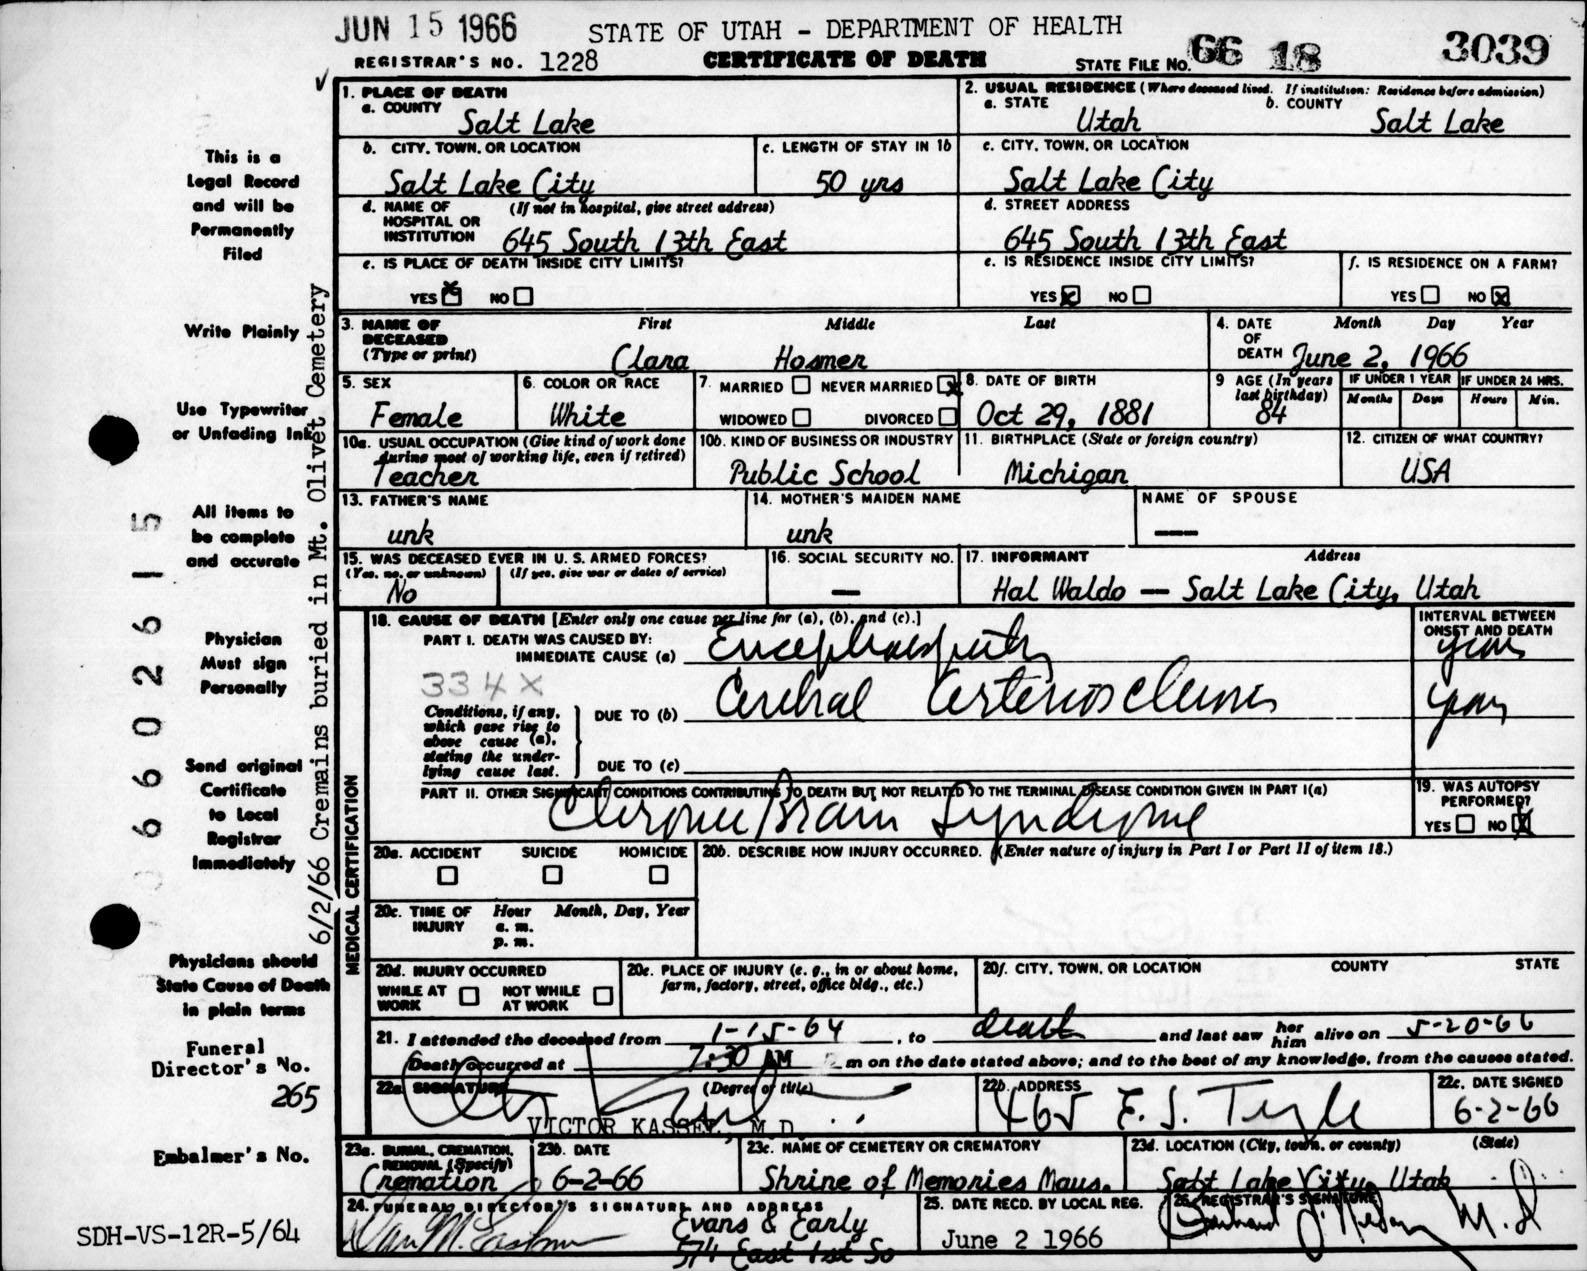 JUN 15 1966 STATE OF UTAH - DEPARTMENT OF HEALTH
REGISTRAR'S NO. 1228 CERTIFICATE OF DEATH STATE FILE NO. 66 18 3039
1. PLACE OF DEATH
a. COUNTY
Salt Lake
2. USUAL RESIDENCE (Where deceased lived. If institution: Residence before admission)
a. STATE b. COUNTY
Utah Salt Lake
b. CITY, TOWN, OR LOCATION
Salt Lake City
c. LENGTH OF STAY IN 1b
50 yrs
c. CITY, TOWN, OR LOCATION
Salt Lake City
d. NAME OF (If not in hospital, give street address)
HOSPITAL OR
INSTITUTION 645 South 13th East
d. STREET ADDRESS
645 South 13th East
e. IS PLACE OF DEATH INSIDE CITY LIMITS?
YES X NO
e. IS RESIDENCE INSIDE CITY LIMITS?
YES X NO
f. IS RESIDENCE ON A FARM?
YES NO X
3. NAME OF First Middle Last
DECEASED
(Type or print) Clara Hosmer
4. DATE Month Day Year
OF
DEATH June 2, 1966
5. SEX
Female
6. COLOR OR RACE
White
7. MARRIED NEVER MARRIED X
WIDOWED DIVORCED
8. DATE OF BIRTH
Oct 29, 1881
9 AGE (In years
last birthday)
84
IF UNDER 1 YEAR IF UNDER 24 HRS.
Months Days Hours Min.
10a. USUAL OCCUPATION (Give kind of work done
during most of working life, even if retired)
Teacher
10b. KIND OF BUSINESS OR INDUSTRY
Public School
11. BIRTHPLACE (State or foreign country)
Michigan
12. CITIZEN OF WHAT COUNTRY?
USA
13. FATHER'S NAME
unk
14. MOTHER'S MAIDEN NAME
unk
NAME OF SPOUSE
—
15. WAS DECEASED EVER IN U. S. ARMED FORCES?
(Yes, no, or unknown) (If yes, give war or dates of service)
No
16. SOCIAL SECURITY NO.
—
17. INFORMANT Address
Hal Waldo — Salt Lake City, Utah
MEDICAL CERTIFICATION
18. CAUSE OF DEATH [Enter only one cause per line for (a), (b), and (c).]
PART I. DEATH WAS CAUSED BY:
IMMEDIATE CAUSE (a) Encephalopathy
INTERVAL BETWEEN
ONSET AND DEATH
years
334X
Conditions, if any,
which gave rise to
above cause (a),
stating the under-
lying cause last.
DUE TO (b) Cerebral Arteriosclerosis years
DUE TO (c)
PART II. OTHER SIGNIFICANT CONDITIONS CONTRIBUTING TO DEATH BUT NOT RELATED TO THE TERMINAL DISEASE CONDITION GIVEN IN PART I(a)
Chronic Brain Syndrome
19. WAS AUTOPSY
PERFORMED?
YES NO X
20a. ACCIDENT SUICIDE HOMICIDE
20b. DESCRIBE HOW INJURY OCCURRED. (Enter nature of injury in Part I or Part II of item 18.)
20c. TIME OF Hour Month, Day, Year
INJURY a. m.
p. m.
20d. INJURY OCCURRED
WHILE AT NOT WHILE
WORK AT WORK
20e. PLACE OF INJURY (e. g., in or about home,
farm, factory, street, office bldg., etc.)
20f. CITY, TOWN, OR LOCATION COUNTY STATE
21. I attended the deceased from 1-15-64, to death and last saw her him alive on 5-20-66
Death occurred at 7:30 AM m on the date stated above; and to the best of my knowledge, from the causes stated.
22a. SIGNATURE (Degree or title)
VICTOR KASSEL, M.D.
22b. ADDRESS
465 E. S. Temple
22c. DATE SIGNED
6-2-66
23a. BURIAL, CREMATION,
REMOVAL (Specify)
Cremation
23b. DATE
6-2-66
23c. NAME OF CEMETERY OR CREMATORY
Shrine of Memories Maus.
23d. LOCATION (City, town, or county) (State)
Salt Lake City, Utah
24. FUNERAL DIRECTOR'S SIGNATURE AND ADDRESS
Evans & Early
574 East 1st So
25. DATE RECD. BY LOCAL REG.
June 2 1966
26. REGISTRAR'S SIGNATURE
M.D.
This is a
Legal Record
and will be
Permanently
Filed
Write Plainly
Use Typewriter
or Unfading Ink
All items to
be complete
and accurate
Physician
Must sign
Personally
Send original
Certificate
to Local
Registrar
Immediately
Physicians should
State Cause of Death
in plain terms
Funeral
Director's No.
265
Embalmer's No.
SDH-VS-12R-5/64
6/2/66 Cremains buried in Mt. Olivet Cemetery